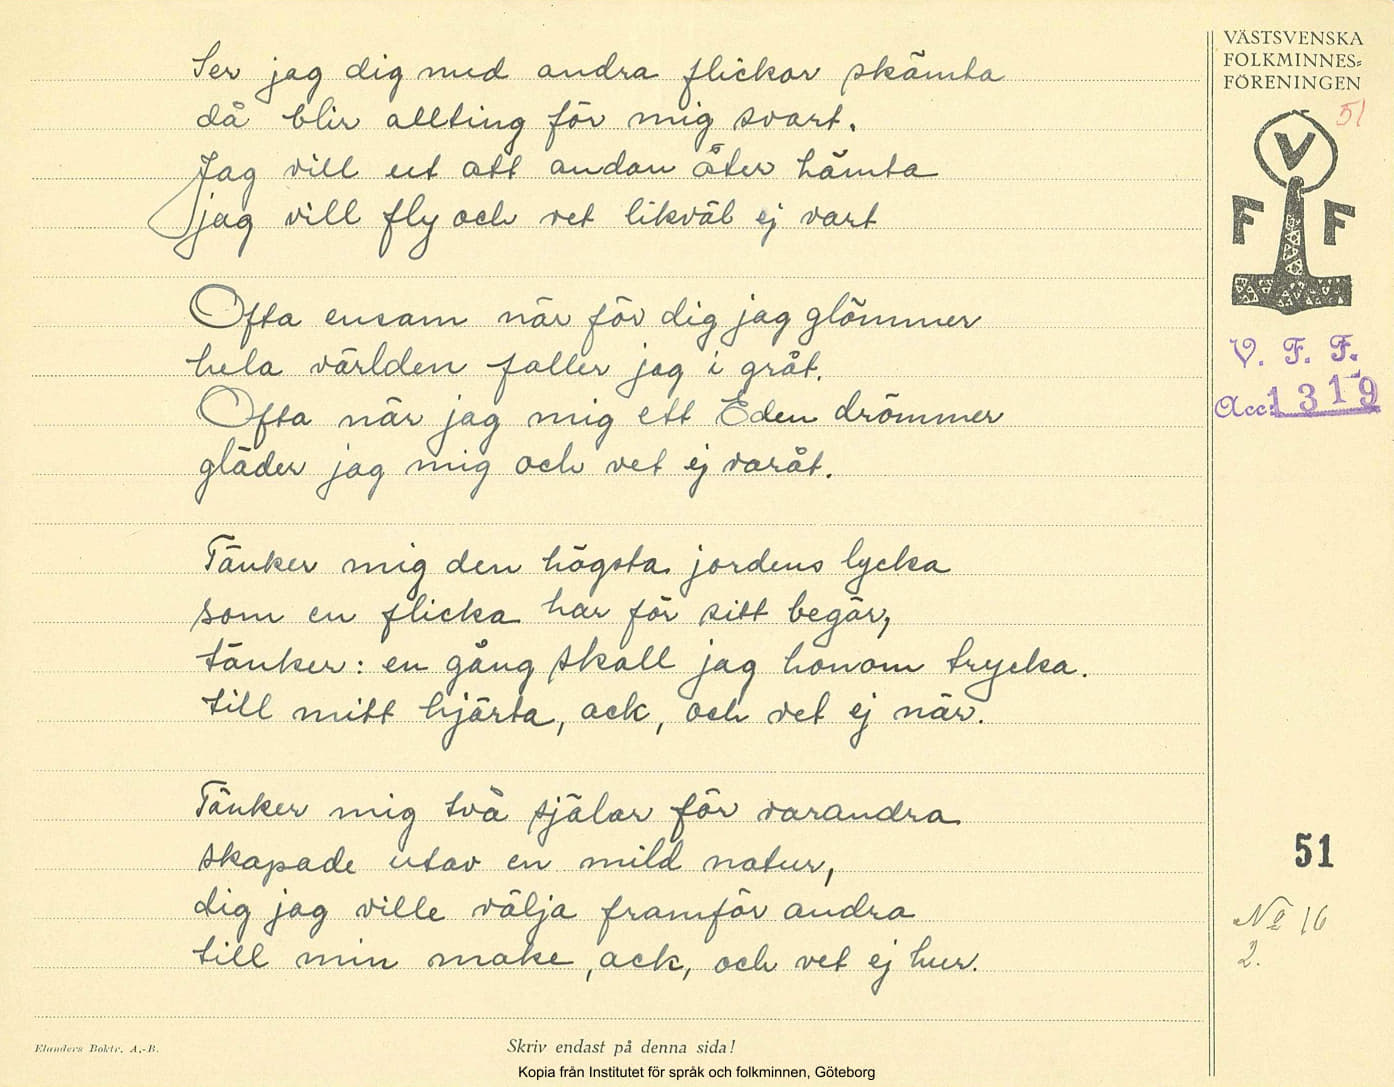 Ser jag dig med andra flickor skämta
då blir allting för mig svart.
Jag vill ut att andan åter hämta
jag vill fly och vet likväl ej vart
Ofta ensam när för dig jag glömmer
hela världen faller jag i gråt.
Ofta när jag mig ett Eden drömmer
gläder jag mig och vet ej varåt.
Tänker mig den högsta jordens lycka
som en flicka har för sitt begär,
tänker: en gång skall jag honom trycka.
till mitt hjärta, ack, och vet ej när.
Tänker mig två själar för varandra
skapade utav en mild natur,
dig jag ville välja framför andra
till min make, ack, och vet ej hur.
VÄSTSVENSKA
FOLKMINNES-
FÖRENINGEN
51
V
F F
V. F. F.
Acc: 1319
51
No 16
2.
Elanders Boktr. A.-B.
Skriv endast på denna sida!
Kopia från Institutet för språk och folkminnen, Göteborg